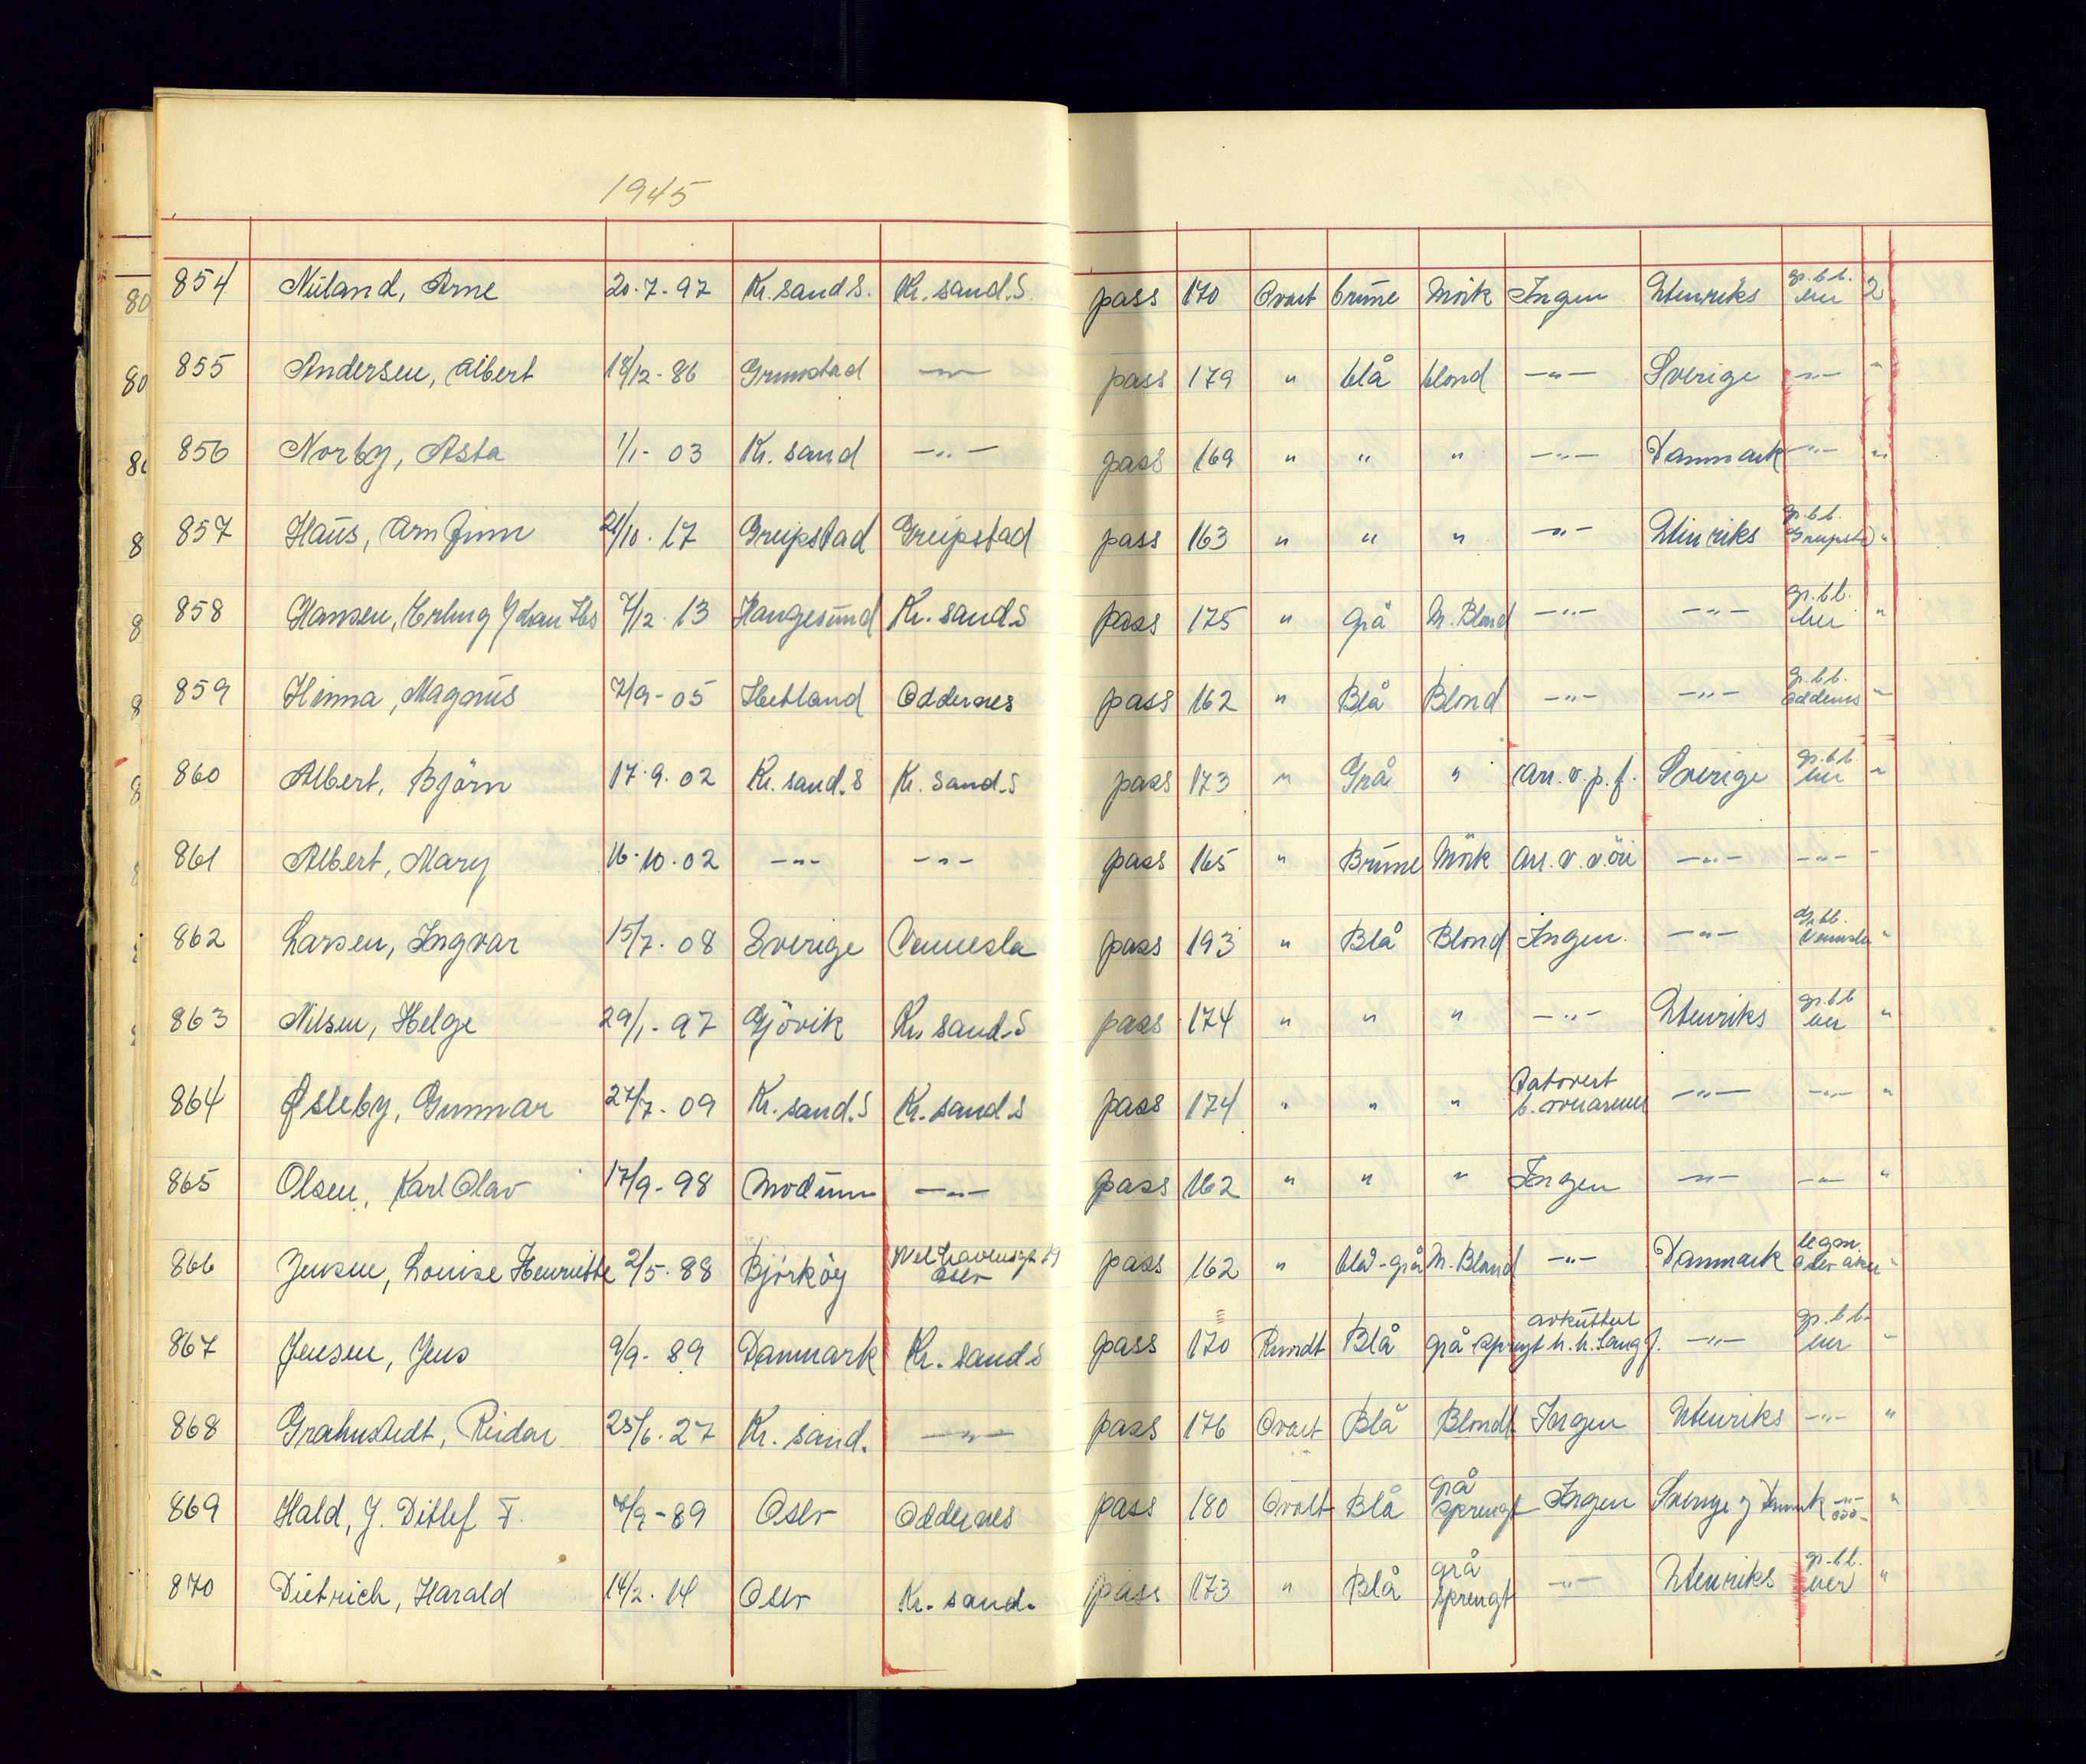 1945
854 Nüland, Arne 20.7.97 Kr.sand S. Kr. sand.S pass 170 Ovalt brüne Mörk Ingen Utenriks gr.b.b. her 2
855 Andersen, Albert 18/12-86 Grimstad —"— pass 179 " blå blond —"— Sverige —"— "
856 Norby, Asta 1/1-03 Kr. sand —"— pass 169 " " " —"— Danmark —"— "
857 Haüs, Arn Finn 21/10.17 Greipstad Greipstad pass 163 " " " —"— Utenriks gr.b.b. Greipsta "
858 Hansen, Erling Johan 7/12.13 Haugesünd Kr. sand.S pass 175 " Grå M. Blond —"— —"— gr.b.b. her "
859 Hinna, Magnüs 7/9-05 Hetland Oddernes pass 162 " Blå Blond —"— —"— gr.b.b. Oddernes "
860 Albert, Björn 17.9.02 Kr. sand.S Kr. sand.S pass 173 " Grå " Arr. v. p. f. Sverige gr.b.b. her "
861 Albert, Mary 16.10.02 —"— —"— pass 165 " Brüne Mörk Arr. v. v.öi —"— —"— "
862 Larsen, Ingvar 15/7.08 Sverige Vennesla pass 193 " Blå Blond Ingen. —"— gr.bb. Vennesla "
863 Nilsen, Helge 29/1-97 Gjövik Kr. sand.S pass 174 " " " —"— Utenriks gr.b.b her "
864 Øsleby, Gunnar 27/7.09 Kr. sand.S Kr. sand.S pass 174 " " " Tatovert b. overarmer —"— —"— "
865 Olsen, Karl Olav 17/9-98 Modüm —"— pass 162 " " " Ingen —"— —"— "
866 Jensen, Louise Henriette 2/5.88 Bjórköy Oslo pass 162 " blå-grå M. Blond —"— Danmark legm. Oslo "
867 Jensen, Jens 9/9.89 Danmark Kr. sand S pass 170 Rundt Blå Grå sprengt avküttet h. h. lang f. —"— gr.b.b. her "
868 Grahnstedt, Reidar 25/6.27 Kr. sand. —"— pass 176 Ovalt Blå Blondt Ingen Utenriks —"— "
869 Hald, J. Ditlef F. 7/9-89 Oslo Oddernes pass 180 Ovalt Blå grå sprengt Ingen Sverige og Danmk —"— odd- "
870 Dietrich, Harald 14/2.14 Oslo Kr. sand. pass 173 " Blå grå sprengt —"— Utenriks gr.b.b. her "